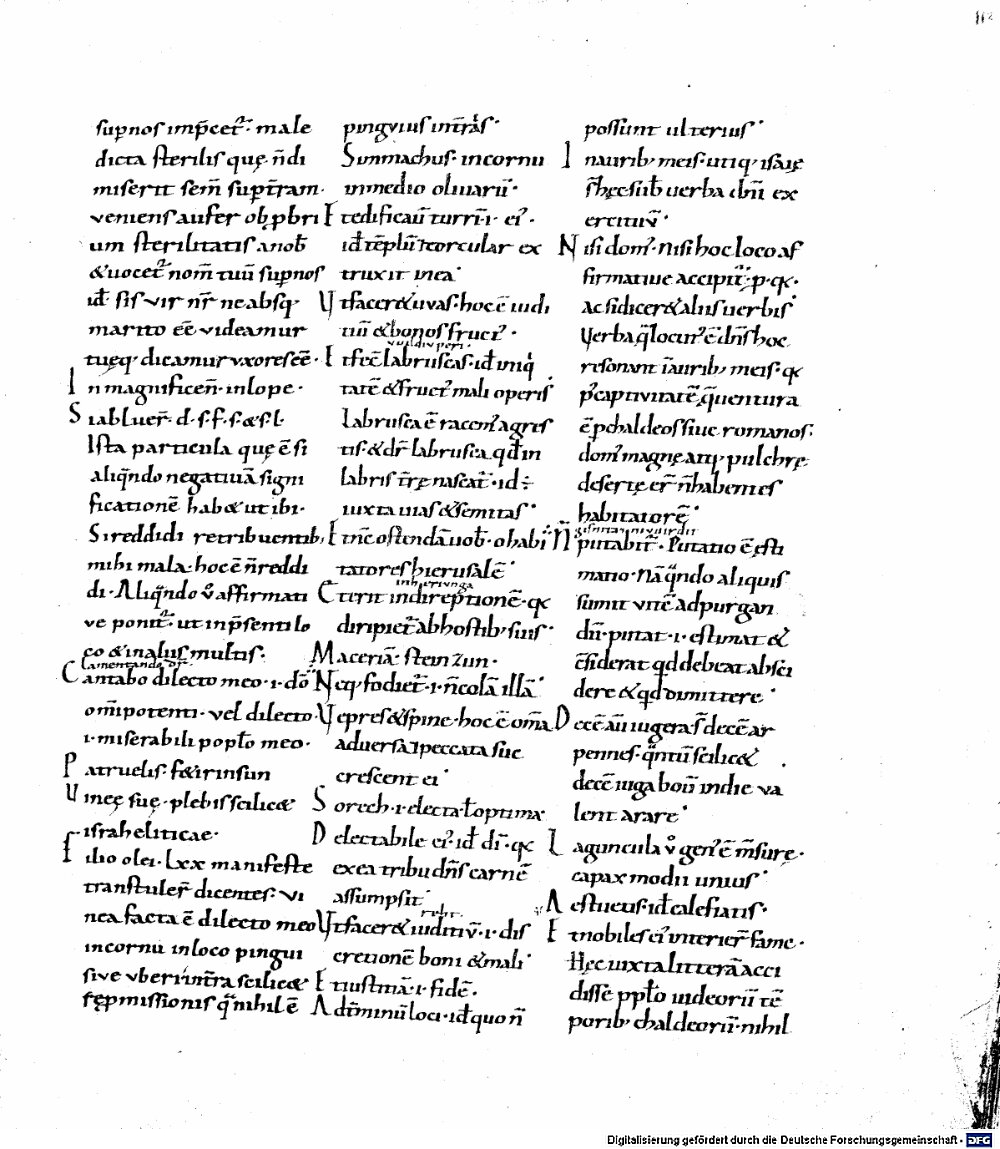 112
sup nos imp̄cet̄· male
dicta sterilis quę n̄ di
miserit sem̄ sup t̄ram·
veniens aufer ob p̱bri
um sterilitatis a nob̄
& uocet̄ nom̄ tuū sup nos
id̄ sis vir nr̄ ne absq;
marito eē videamur
tuęq; dicamur vxores eē·
In magnificen̄· in lope·
Si abluer̄· d· s· f· s· & s· l·
Ista particula quę ē si
aliq̄ndo negativā signi
ficationē hab& ut ibi·
Si reddidi retribuentib;
mihi mala· hoc ē n̄ reddi
di· Aliq̄ndo v̄ affirmati
ve ponit̄· ut in p̄senti lo
co & in aliis multis·
lamentando
Cantabo dilecto meo· i· dō
om̄ipotenti· vel dilecto
i· miserabili popłō meo·
Patruelis· f&ir insun
Vineę suę· plebis scilic&
israheliticae·
Filio olei· Lxx manifeste
transtuler̄ dicentes· vi
nea facta ē dilecto meo
in cornu in loco pingui
sive vberi in t̄ra scilic&
sępmissionis q̄ nihil ē
pingvius in t̄ris·
Sunmachus· in cornu
in medio olivarū·
Et edificau̅ turrī· i· ei'·
id̄ tēplū & torcular ex
truxit in ea·
Vt facer& uvas· hoc ē iudi
tiū & bonos fruct'·
Et fec̄ labruscas· id̄ iniq
tatē & fruct' mali operis
labrusca ē racem' agres
tis· & dr̄ labrusca qđ in
labris t̄rę nascat̄· id ÷
iuxta uias & semitas·
Et n̄c ostendā uob̄· o habi
tatores hierusalē·
Et erit in direptionē· qc
diripiet̄ ab hostib; suis·
Maceriā· steinzun·
Neq; fodiet̄· i· n̄ colā illā·
Vepres & spine· hoc ē om̄a
adversa & peccata suc
crescent ei·
Sorech· i· electa ł optima
Delectabile ei'· id̄ dī· qc
ex ea tribu dn̄s carnē
assumpsit·
Vt facer& iuditiū· i· dis
cretionē boni & mali·
Et iustitiā· i· fidē·
Ad t̄minū loci· id̄ quo n̄
possunt ulterius·
In aurib; meis· utiq; isaię
s̄ hęc sūt uerba dn̄i ex
ercituū·
Nisi dom'· Nisi hoc loco af
firmative accipit̄· p· qc·
ac si dicer& aliis uerbis
Verba q̄ locut' ē dn̄s hoc
resonant ī aurib; meis· qc
p' captivitatē q̄ uentura
ē p chaldeos sive romanos·
dom' magnę atq; pulchrę
desertę er̄ n̄ habentes
habitatorē·
N̄ putabit̄· Putatio ē esti
matio· Nā q̄ndo aliquis
sumit vitē ad purgan
dū· putat· i· estimat &
c̄siderat qđ debeat absci
dere & qđ dimittere·
Decē aū iugera s̄ decē ar
pennes· q̄ntū scilic&
decē iuga boū in die va
lent arare·
Laguncula v̄ gen' ē m̄surę·
capax modii unius·
Aestueus· id̄ calefiatis·
Et nobiles ei' interier̄ fame·
Hęc iuxta litterā acci
disse ppłō iudeorū tē
porib; chaldeorū· nihil
Digitalisierung gefördert durch die Deutsche Forschungsgemeinschaft - DFG